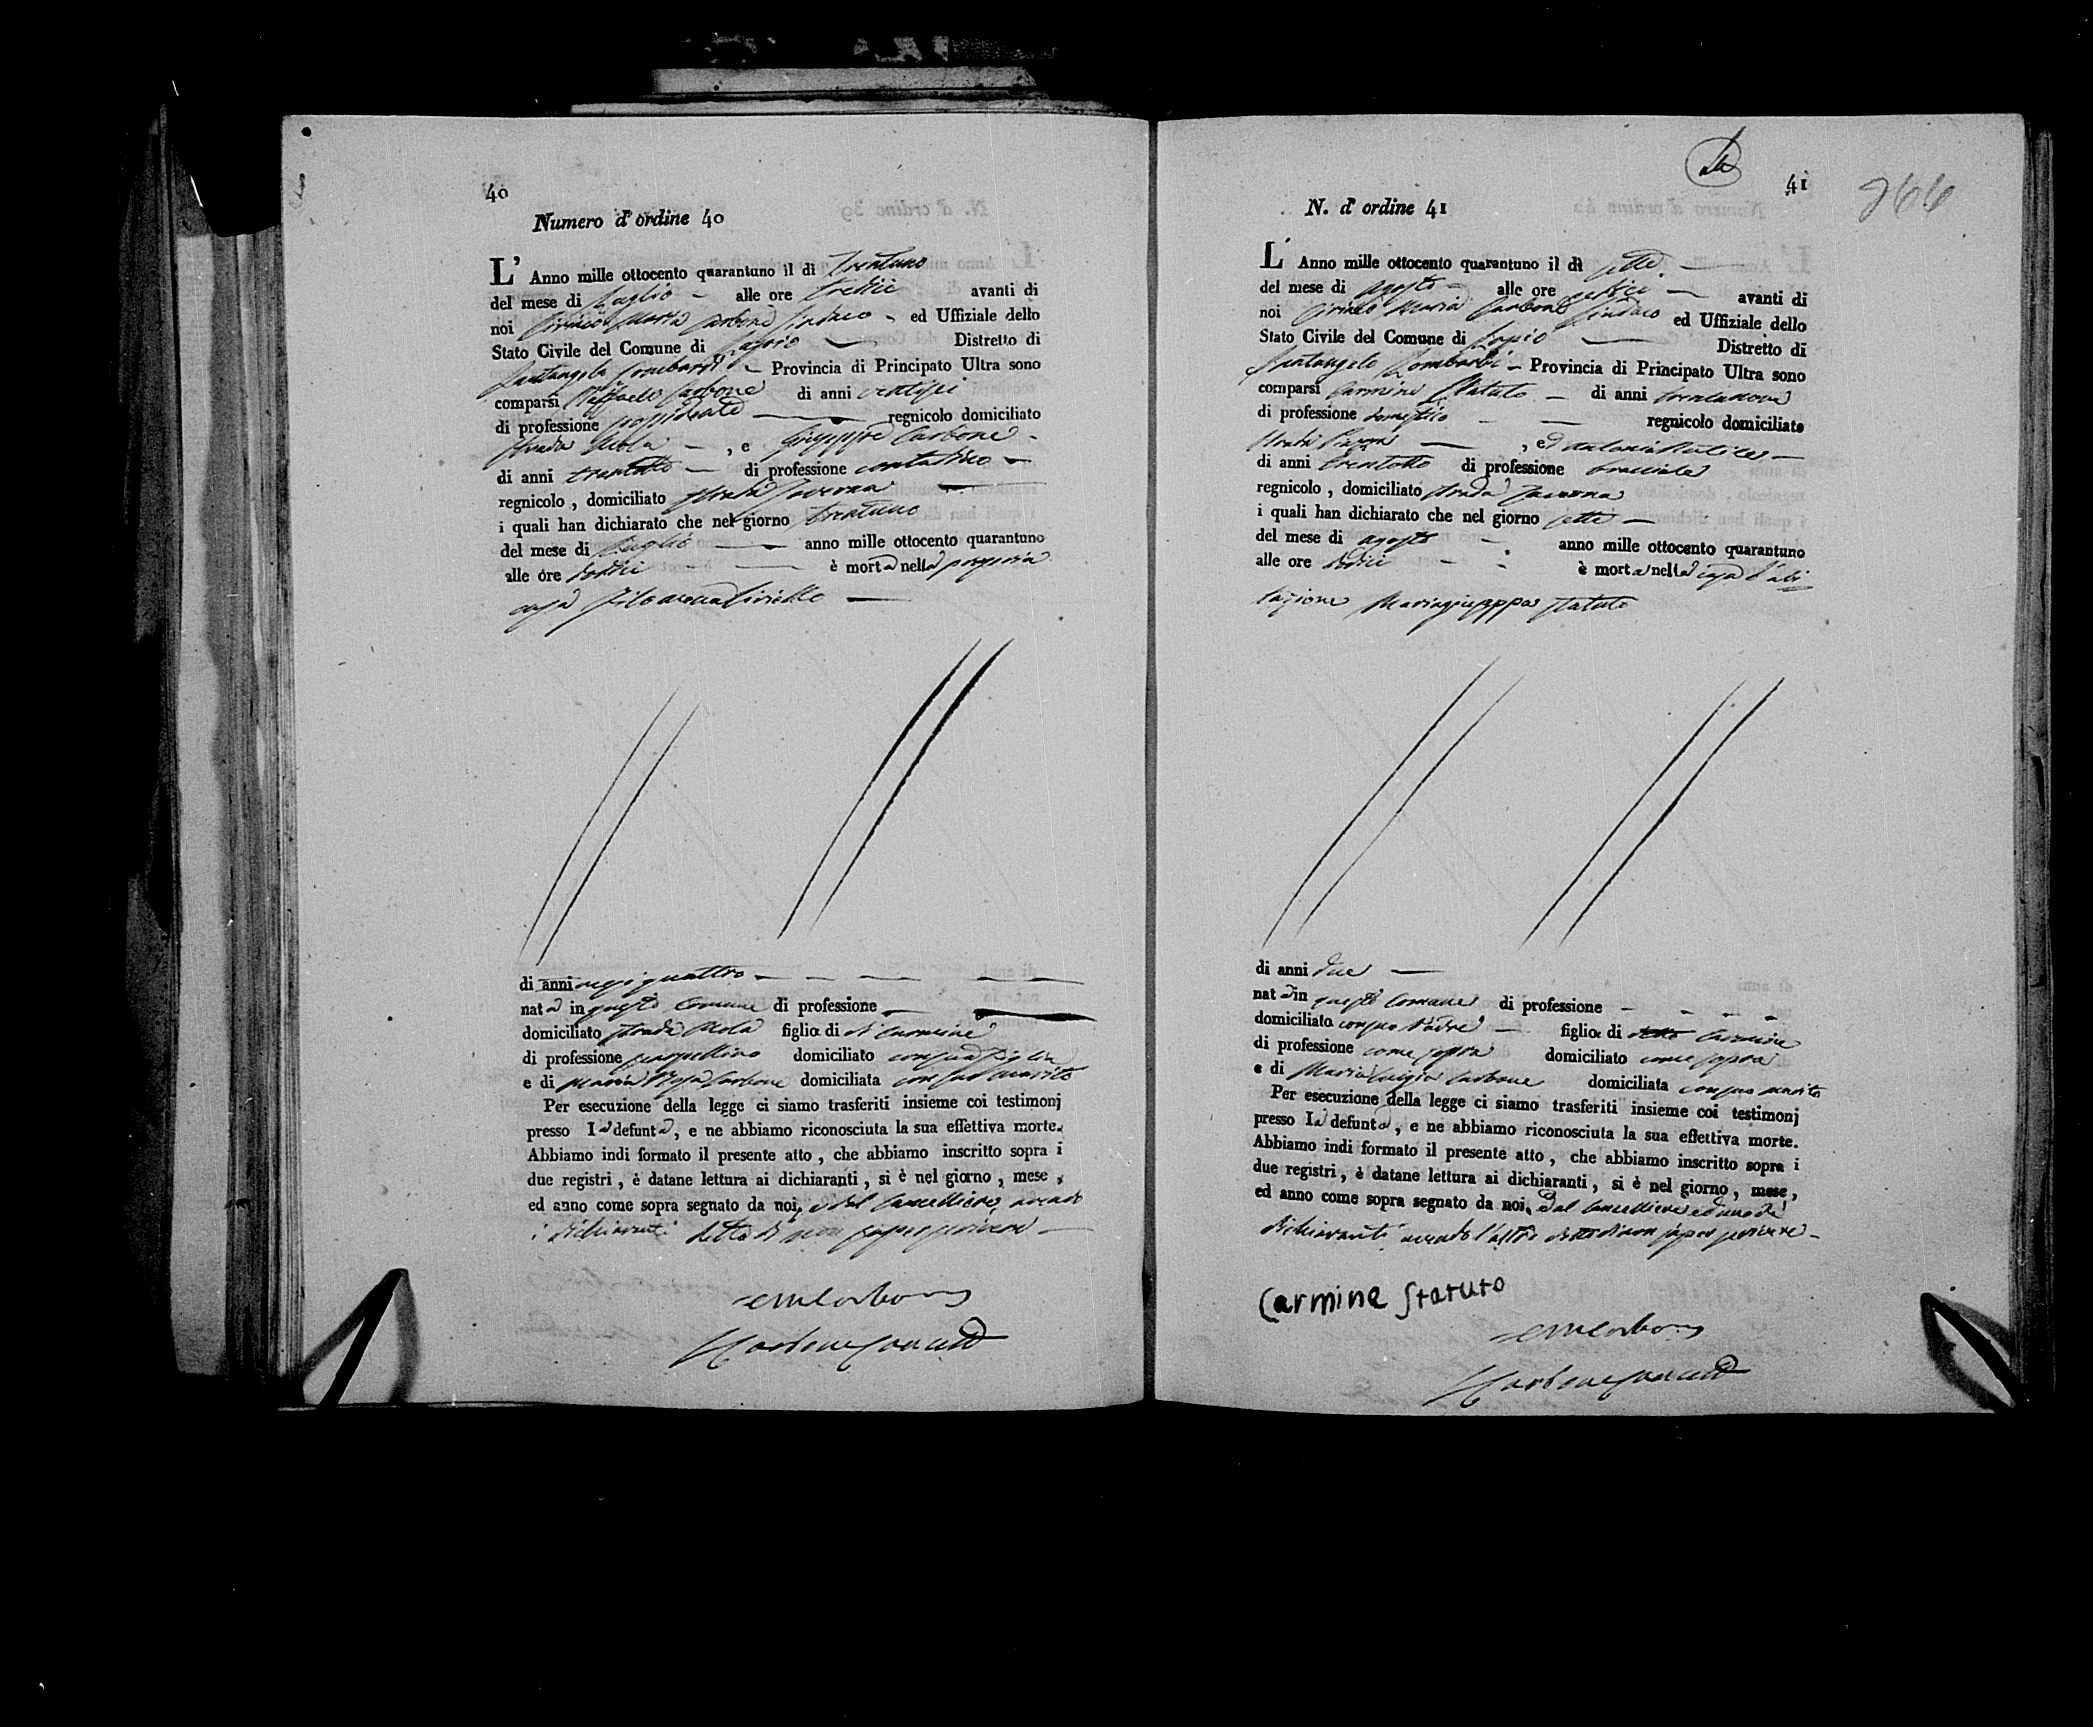 40
Numero d' ordine 40
L' Anno mille ottocento quarantuno il di trentuno
del mese di Luglio alle ore tredici avanti di
noi Maria Carbone Sindaco ed Uffiziale dello
Stato Civile del Comune di Lapio Distretto di
Santangelo Lombardi Provincia di Principato Ultra sono
comparsi Raffaele Carbone di anni ventisei
di professione possidente regnicolo domiciliato
strada , e Giuseppe Carbone
di anni trentotto di professione contadino
regnicolo , domiciliato strada Taverna
i quali han dichiarato che nel giorno trentuno
del mese di Luglio anno mille ottocento quarantuno
alle ore dodici è morta nella propria
casa Filomena
di anni mesi quattro
nata in questo Comune di professione
domiciliato strada figlia di di Carmine
di professione domiciliato con sua figlia
e di Maria Rosa Carbone domiciliata con suo marito
Per esecuzione della legge ci siamo trasferiti insieme coi testimonj
presso la defunta, e ne abbiamo riconosciuta la sua effettiva morte.
Abbiamo indi formato il presente atto , che abbiamo inscritto sopra i
due registri , è datane lettura ai dichiaranti , si è nel giorno , mese ,
ed anno come sopra segnato da noi, e dal Cancelliere, avendo
i dichiaranti detto di non saper scrivere
41
266
N. d' ordine 41
L' Anno mille ottocento quarantuno il di sette
del mese di agosto alle ore avanti di
noi Maria Carbone Sindaco ed Uffiziale dello
Stato Civile del Comune di Lapio Distretto di
Santangelo Lombardi Provincia di Principato Ultra sono
comparsi Carmine Statuto di anni trentanove
di professione domestico regnicolo domiciliato
strada , ed Antonio
di anni trentotto di professione bracciale
regnicolo , domiciliato strada Taverna
i quali han dichiarato che nel giorno sette
del mese di agosto anno mille ottocento quarantuno
alle ore dodici è morta nella casa d'abi
tazione Mariagiuseppa Statuto
di anni due
nata in questo Comune di professione
domiciliato con suo Padre figlia di Carmine
di professione come sopra domiciliato come sopra
e di Maria Luigia Carbone domiciliata con suo marito
Per esecuzione della legge ci siamo trasferiti insieme coi testimonj
presso la defunta, e ne abbiamo riconosciuta la sua effettiva morte.
Abbiamo indi formato il presente atto , che abbiamo inscritto sopra i
due registri , è datane lettura ai dichiaranti , si è nel giorno , mese,
ed anno come sopra segnato da noi, Dal Cancelliere ed uno de'
dichiaranti avendo l'altro detto di non saper scrivere
Carmine Statuto